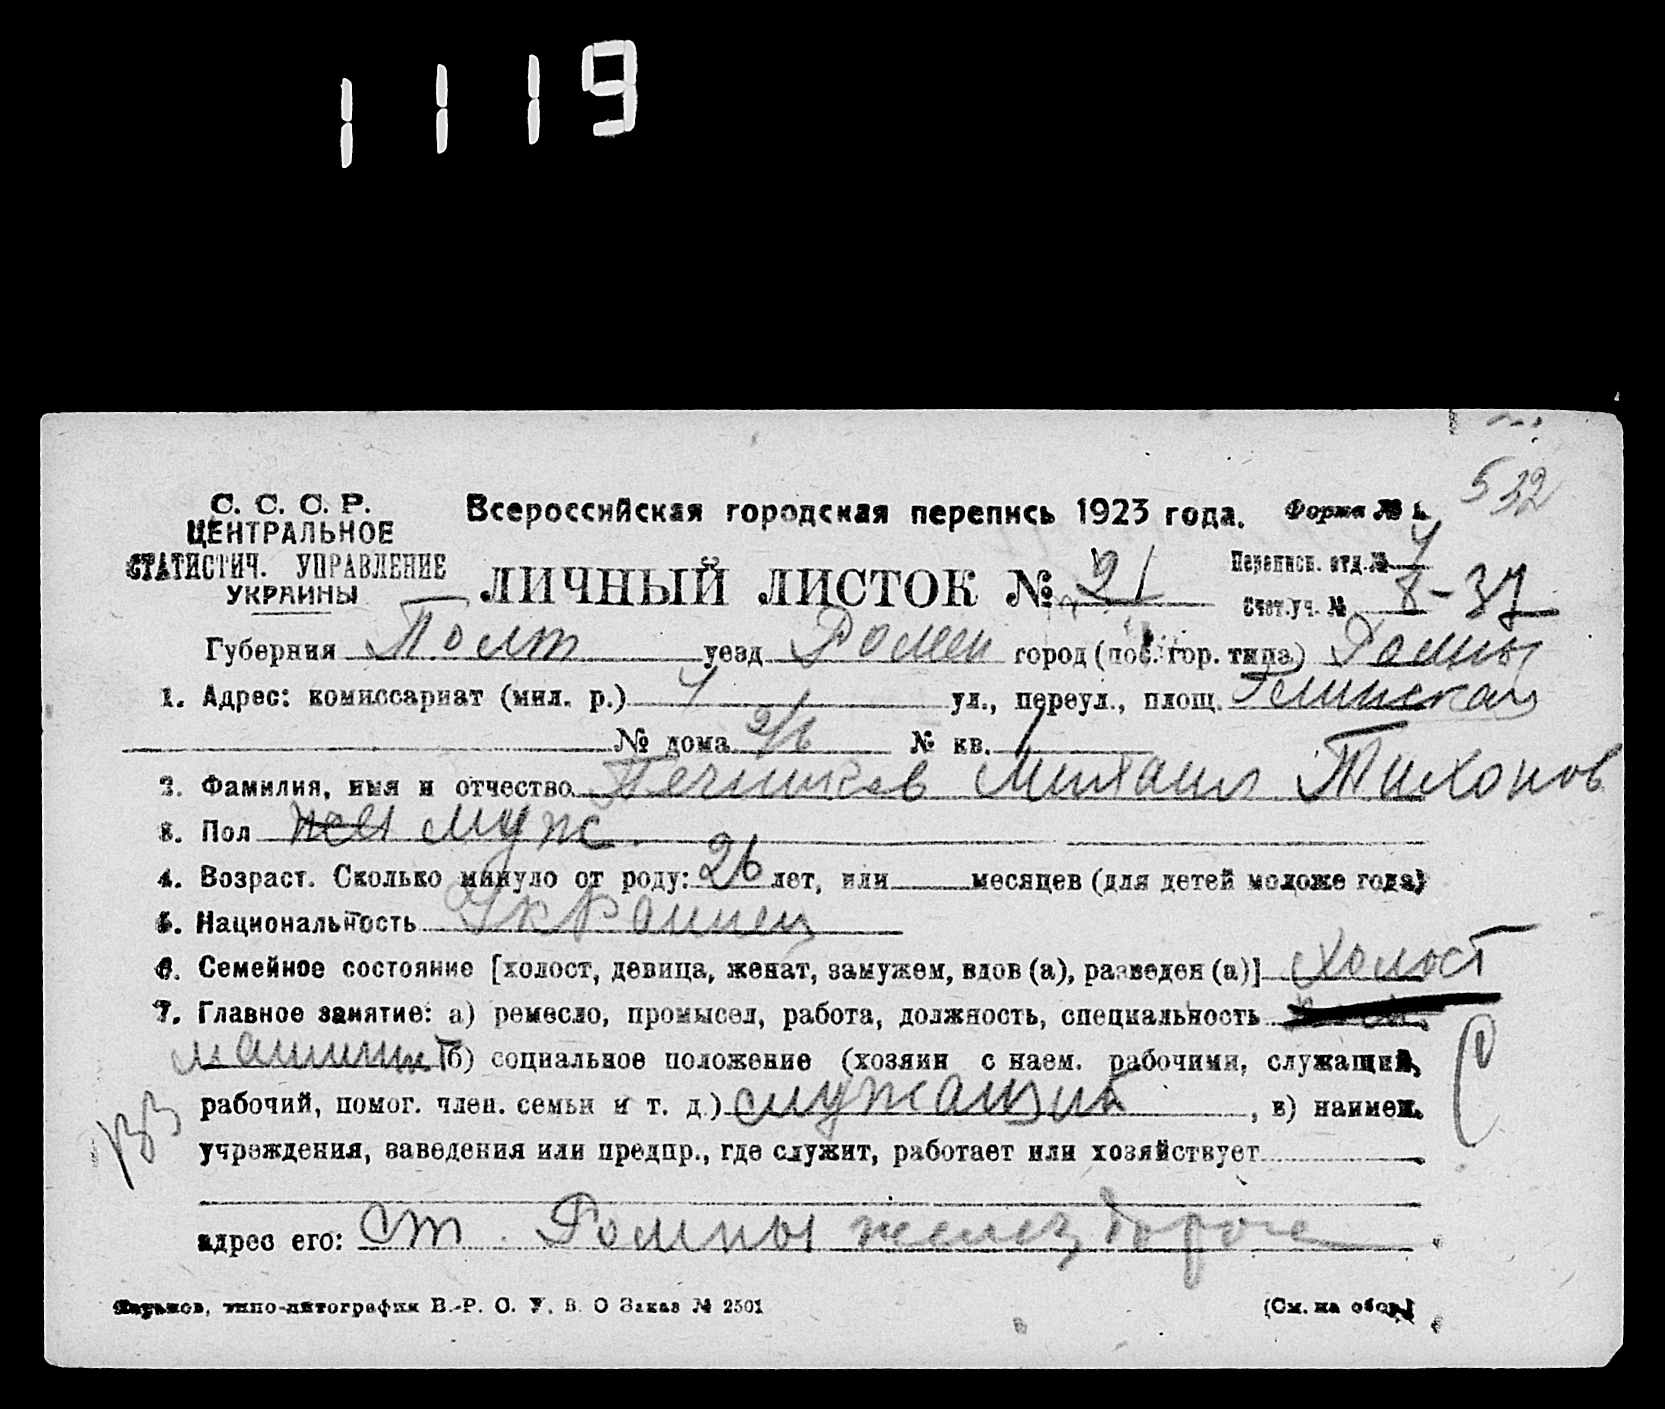 1119
532
С. С. С. Р.
ЦЕНТРАЛЬНОЕ
СТАТИСТИЧ. УПРАВЛЕНИЕ
УКРАИНЫ
Всероссийская городская перепись 1923 года.
Форма № 1.
ЛИЧНЫЙ ЛИСТОК № 21
Переписн. отд. № 4
Счет. уч. № 8-37
Губерния Полт уезд Ромен город (пос. гор. типа) Ромны
1. Адрес: комиссариат (мил. р.) 4 ул., переул., площ.
№ дома 2/6 № кв. 1
2. Фамилия, имя и отчество Печников Михаил Тихонов
3. Пол жен муж.
4. Возраст. Сколько минуло от роду: 26 лет, или месяцев (для детей моложе года)
5. Национальность Украинец
6. Семейное состояние [холост, девица, женат, замужем, вдов (а), разведен (а)] холост
7. Главное занятие: а) ремесло, промысел, работа, должность, специальность
машинист б) социальное положение (хозяин с наем. рабочими, служащий,
рабочий, помог. член. семьи и т. д.) служащий, в) наимен.
учреждения, заведения или предпр., где служит, работает или хозяйствует
адрес его: ст. Ромны желез дороге
Харьков, типо-литография В.-Р. О. У. В. О Заказ № 2501
(См. на обор.)